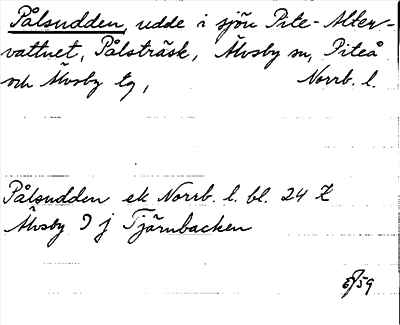 Pålsudden, udde i sjön Pite-Alter-
vattnet, Pålsträsk, Älvsby sn, Piteå
och Älvsby tg, Norrb. l.
Pålsudden ek Norrb. l. bl. 24 Z
Älvsby 9 j Tjärnbacken